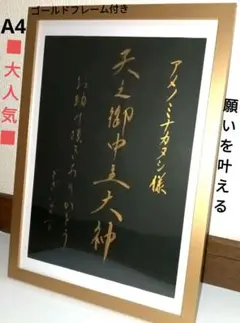 ゴールドフレーム付き
A4
■大人気■
願いを叶える
アメノミナカヌシ様
天之御中主大神
お助け頂きありがとう
ございます